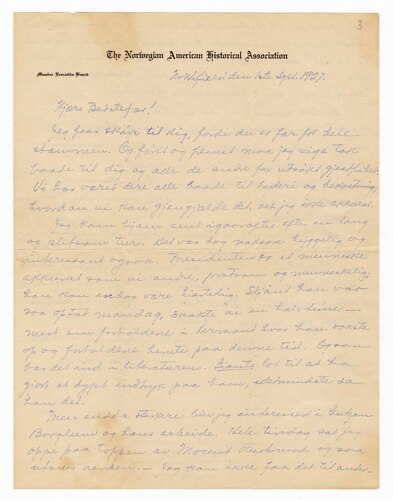 3
The Norwegian American Historical Association
Member Executive Board
Northfield den 1ste Sept. 1927.
Kjære Bedstefar!
Jeg faar skrive til dig, fordi du er far for hele
stammen. Og først og fremst maa jeg sige tak
baade til dig og alle de andre for utsøkt gjestfrihet.
Vi har været dere alle baade til bryderi og bekostning,
hvordan vi kan gjengjælde det, vet jeg ikke akkurat.
Jeg kom hjem sent igaaraftes efter en lang
og slitsom tur. Det var dog nokså hyggelig og
interessant ogsaa. Presidenten er et menneske
akkurat som vi andre, pratsom og menneskelig;
han kan endog være hjertelig. Skjønt han var
saa optat mandag, snakte vi en halv times —
mest om forholdene i Vermont hvor han vokste
op og forholdene herute paa denne tid. Ogsaa
var det ind i literaturen. Giants lot til at ha
gjort et dypt indtryk paa ham, idetmindste sa
han det.
Men endda sterkere blev jeg interessed i Gutzon
Borglum og hans arbeide. Hele tirsdag sat jeg
oppe paa toppen av Mount Rushmore og saa
utover verden. — Jeg kan ikke faa det til ander-